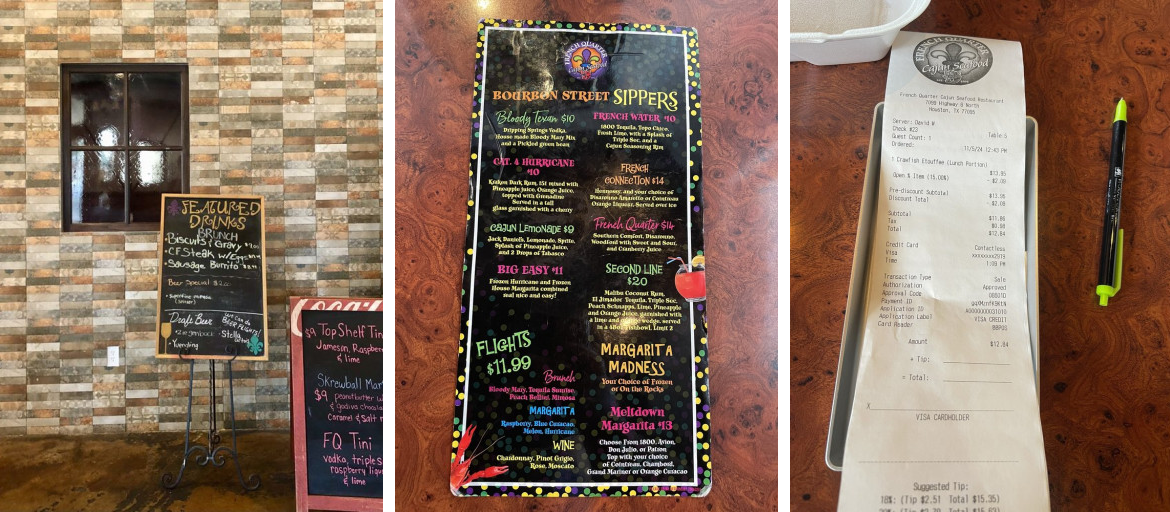 FEATURED
DRINKS
BRUNCH
• Biscuits / Gravy
• CF Steak w/Eggs
• Sausage Burrito
Beer Special
Draft Beer
• Yuengling
• Stella
$9 Top Shelf Tin
Jameson, Raspberr
& lime
Skrewball Mar
$9 peanutbutter w
& godiva chocola
caramel & salt r
FQ Tini
vodka, triple s
raspberry liqu
& lime
FRENCH QUARTER
BOURBON STREET SIPPERS
Bloody Texan $10
Dripping Springs Vodka,
House made Bloody Mary Mix
and a Pickled green bean
CAT. 4 HURRICANE
$10
Kraken Dark Rum, 151 mixed with
Pineapple juice, Orange Juice,
topped with Grenadine
Served in a tall
glass garnished with a cherry
CAJUN LEMONADE $9
Jack Daniels, Lemonade, Sprite,
Splash of Pineapple Juice,
and 2 Drops of Tabasco
BIG EASY $11
Frozen Hurricane and Frozen
House Margarita combined
real nice and easy!
FLIGHTS
$11.99
Brunch
Bloody Mary, Tequila Sunrise,
Peach Bellini, Mimosa
MARGARITA
Raspberry, Blue Curacao,
Melon, Hurricane
WINE
Chardonnay, Pinot Grigio,
Rose, Moscato
FRENCH WATER $10
1800 Tequila, Topo Chico,
Fresh Lime, with a Splash of
Triple Sec, and a
Cajun Seasoning Rim
FRENCH
CONNECTION $14
Hennessy, and your choice of
Disaronno Amaretto or Cointreau
Orange Liqueur, Served over ice
French Quarter $14
Southern Comfort, Disaronno,
Woodford with Sweet and Sour,
and Cranberry Juice
SECOND LINE
$20
Malibu Coconut Rum,
El Jimador Tequila, Triple Sec,
Peach Schnapps, Lime, Pineapple
and Orange Juice, garnished with
a lime and orange wedge, served
in a 48oz Fishbowl. Limit 2
MARGARITA
MADNESS
Your Choice of Frozen
or On the Rocks
Meltdown
Margarita $13
Choose From 1800, Avion,
Don Julio, or Patron
Top with your choice
of Cointreau, Chambord,
Grand Marnier or Orange Curacao
FRENCH QUARTER
Cajun Seafood
French Quarter Cajun Seafood Restaurant
7099 Highway 6 North
Houston, TX 77095
Server: David W
Check #23 Table 5
Guest Count: 1
Ordered: 11/5/24 12:43 PM
1 Crawfish Etouffee (Lunch Portion) $13.95
Open % Item (15.00%) -$2.09
Pre-Discount Subtotal $13.95
Discount Total -$2.09
Subtotal $11.86
Tax $0.98
Total $12.84
Credit Card Contactless
Visa xxxxxxxx2979
Time 1:09 PM
Transaction Type Sale
Authorization Approved
Approval Code
Payment ID
Application ID
Application Label VISA CREDIT
Card Reader BBPOS
Amount $12.84
+ Tip:
= Total:
X
VISA CARDHOLDER
Suggested Tip:
18%: (Tip $2.51 Total $15.35)